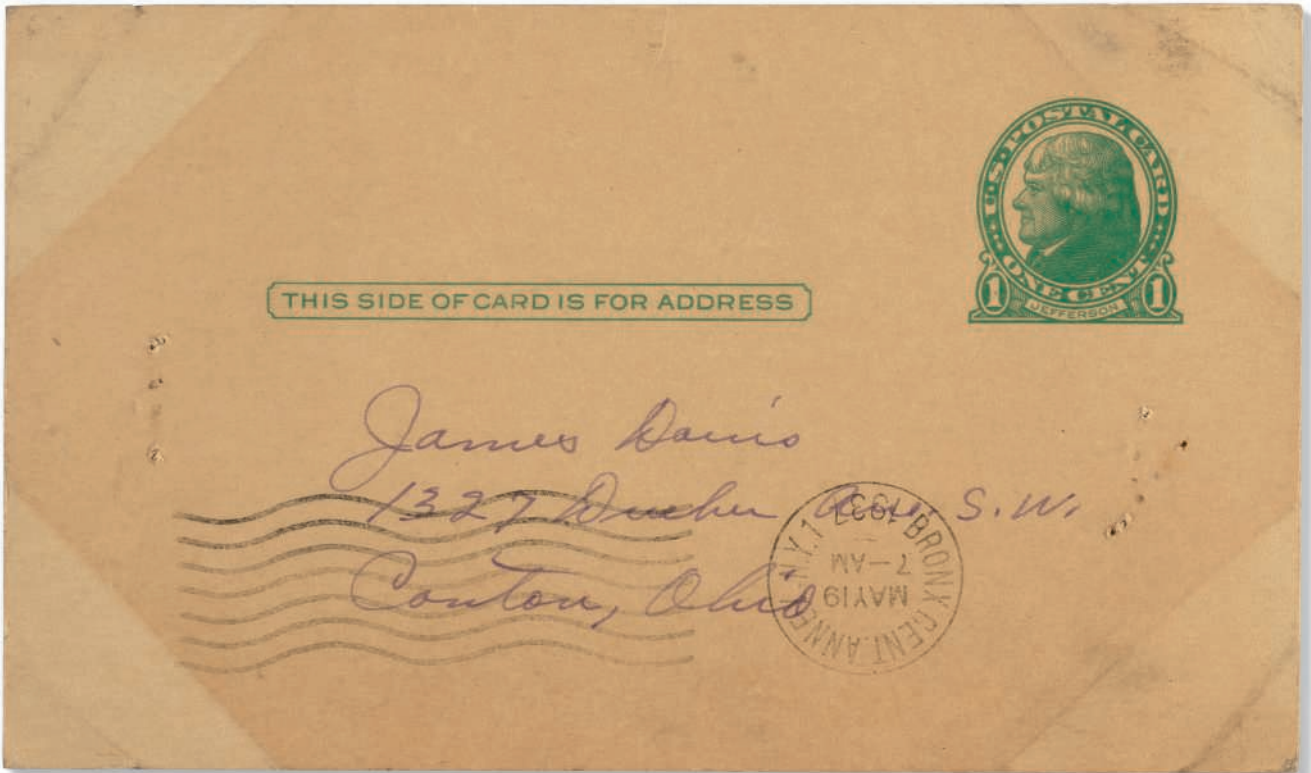 U·S·POSTAL CARD
ONE CENT
1 JEFFERSON 1
THIS SIDE OF CARD IS FOR ADDRESS
James Davis
1327 Dueber Ave. S.W.
Canton, Ohio
BRONX CENT. ANNEX N.Y. 1
MAY 19
7-AM
1937